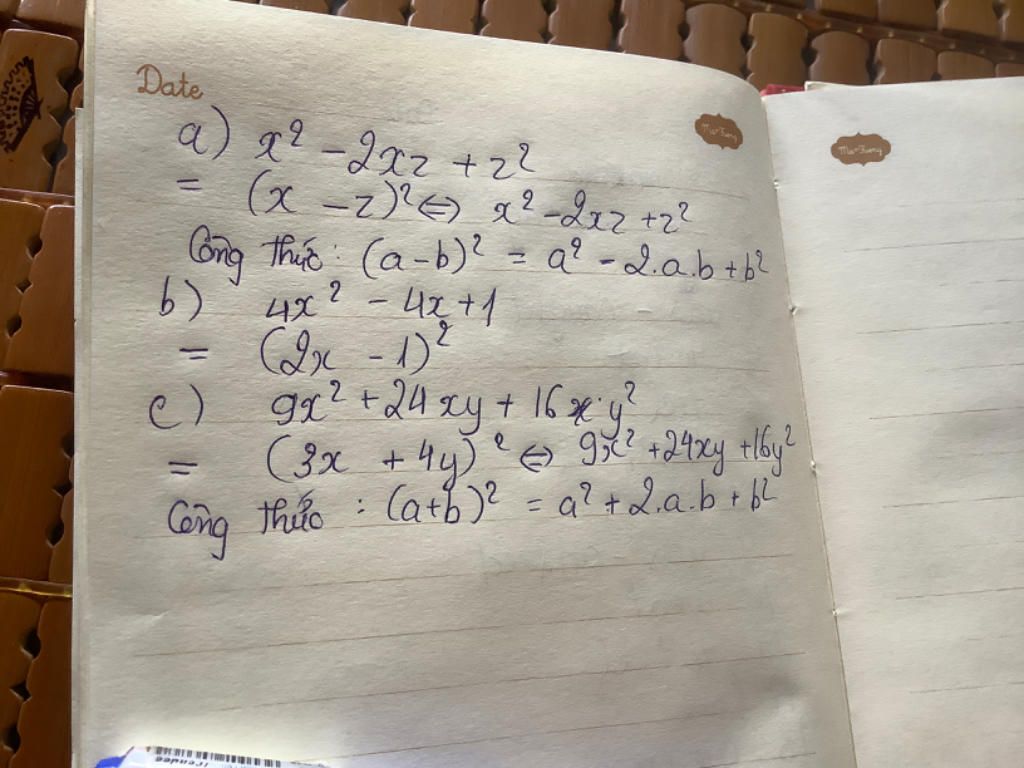 Date
a) x² - 2xz + z²
= (x - z)² ⇔ x² - 2xz + z²
Công thức : (a - b)² = a² - 2.a.b + b²
b) 4x² - 4x + 1
= (2x - 1)²
c) 9x² + 24xy + 16 y²
= (3x + 4y)² ⇔ 9x² + 24xy + 16y²
Công thức : (a+b)² = a² + 2.a.b + b²